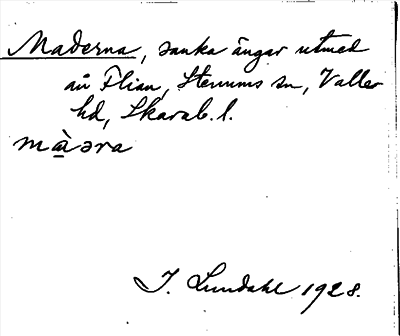 Maderna, sanka ängar utmed
ån Flian, Stenums sn, Valle
hd, Skarab. l.
màəra
I. Lundahl 1928.